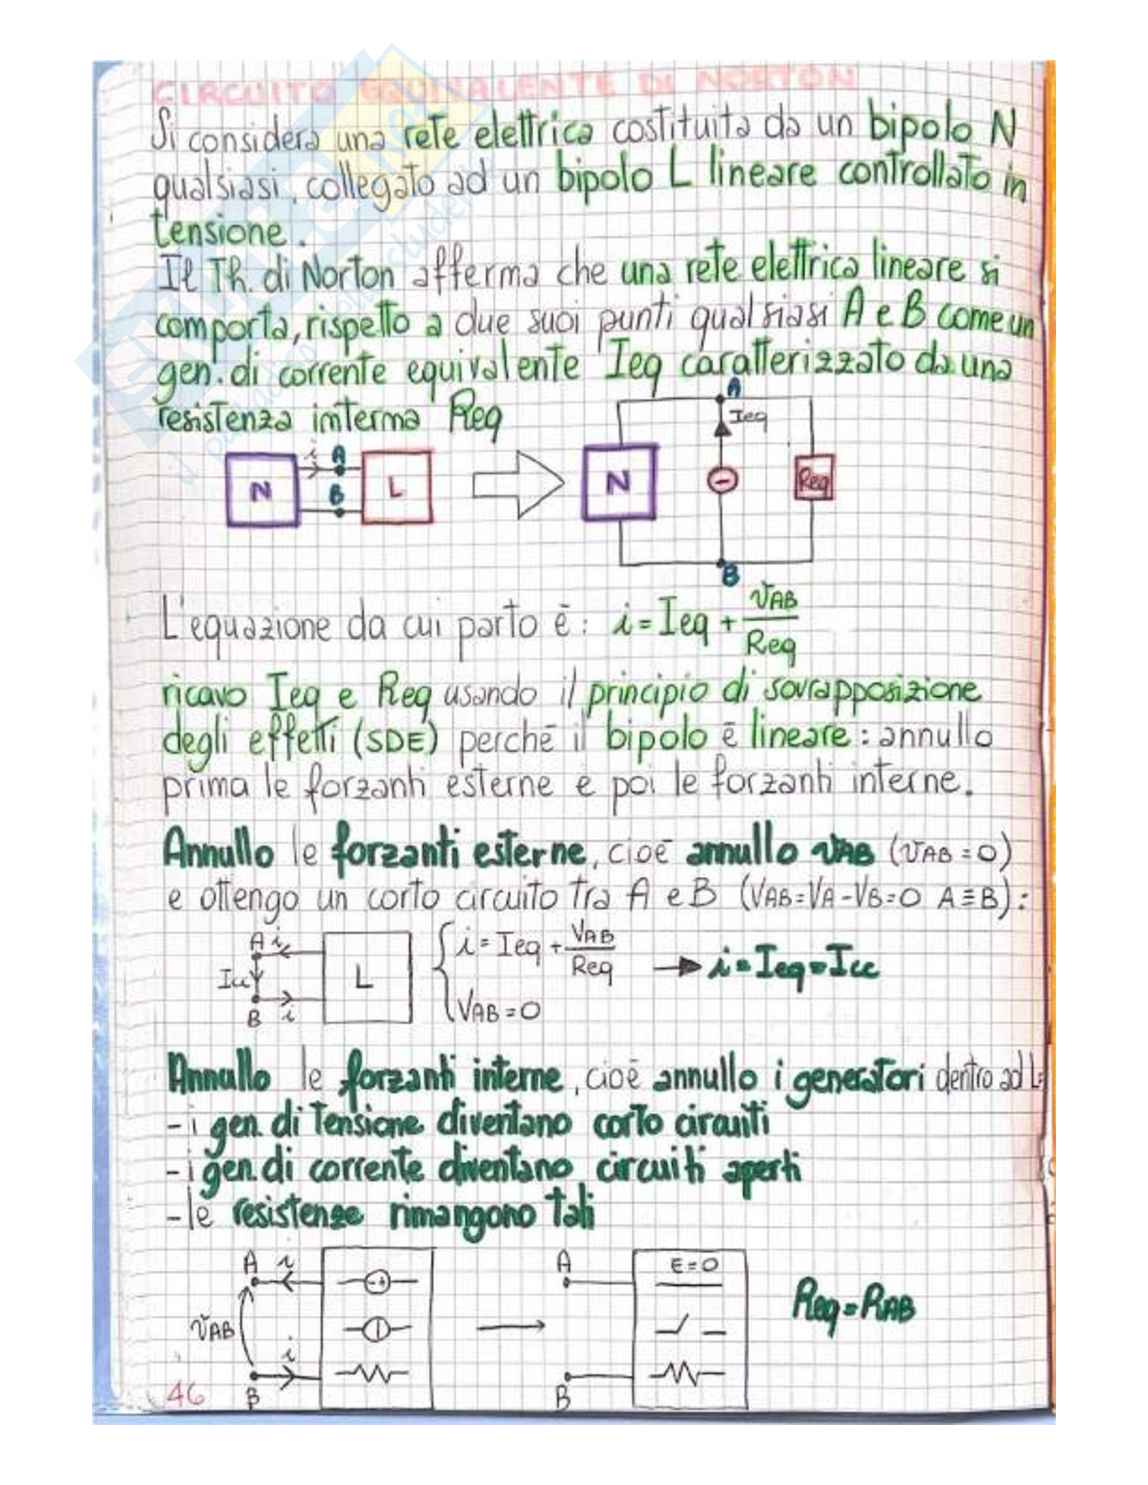 CIRCUITO EQUIVALENTE DI NORTON
Si considera una rete elettrica costituita da un bipolo N
qualsiasi, collegato ad un bipolo L lineare controllato in
tensione.
Il Th. di Norton afferma che una rete elettrica lineare si
comporta, rispetto a due suoi punti qualsiasi A e B come un
gen. di corrente equivalente Ieq caratterizzato da una
resistenza interna Req
N i A B L
N A Ieq B Req
L'equazione da cui parto è: i = Ieq + VAB/Req
ricavo Ieq e Req usando il principio di sovrapposizione
degli effetti (SDE) perchè il bipolo è lineare: annullo
prima le forzanti esterne e poi le forzanti interne.
Annullo le forzanti esterne, cioè annullo VAB (VAB = 0)
e ottengo un corto circuito tra A e B (VAB = VA - VB = 0 A ≡ B):
A i Icc B i L
{ i = Ieq + VAB/Req
VAB = 0
→ i = Ieq = Icc
Annullo le forzanti interne, cioè annullo i generatori dentro ad L:
- i gen. di tensione diventano corto circuiti
- i gen. di corrente diventano circuiti aperti
- le resistenze rimangono tali
A i VAB i B
A E = 0 B
Req = RAB
46